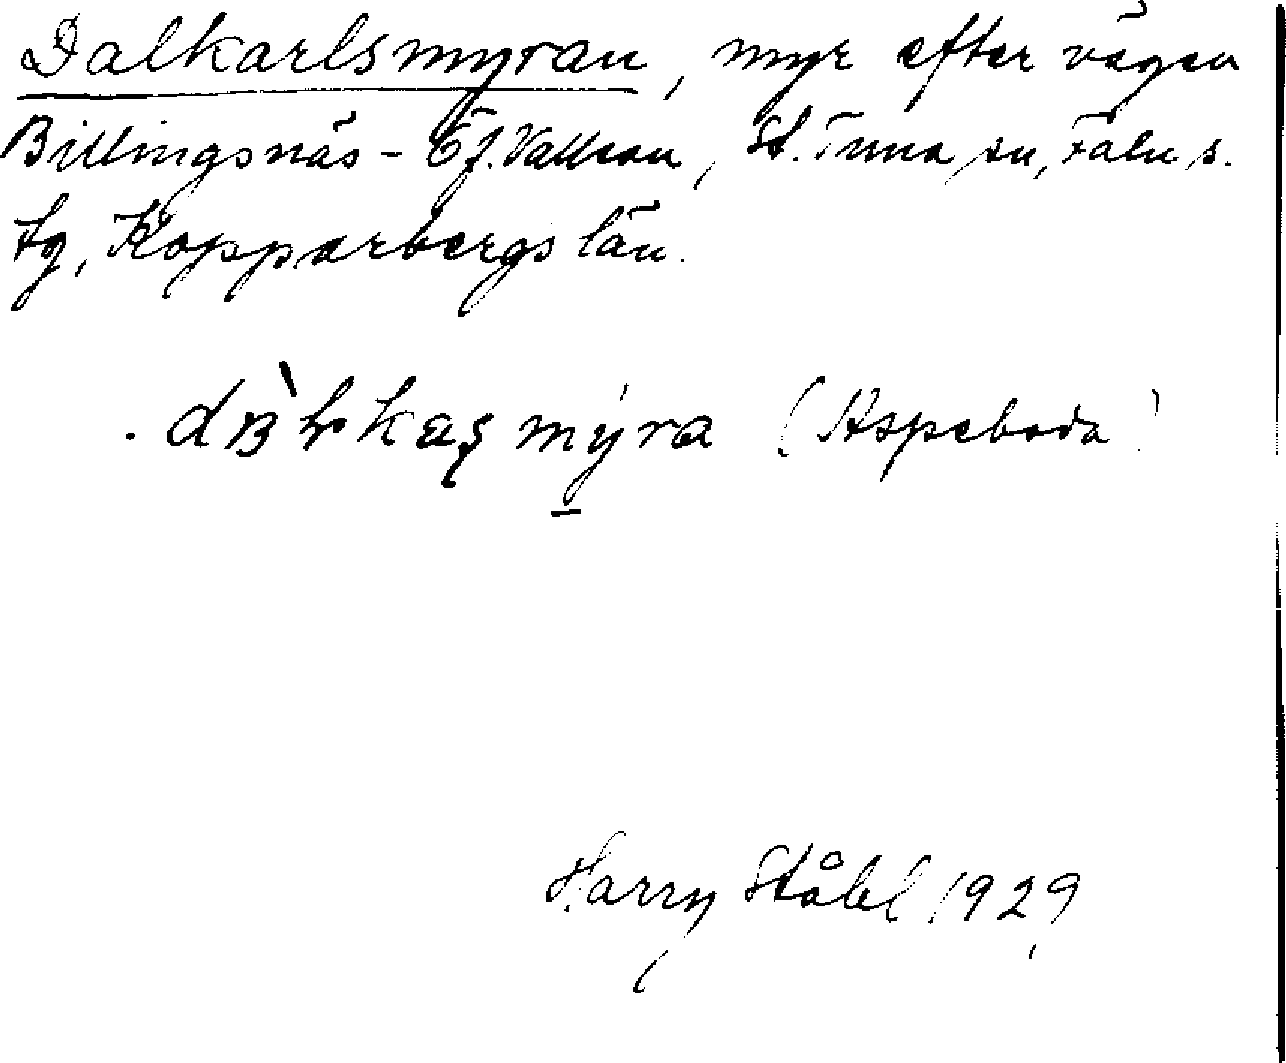 Dalkarlsmyran, myr efter vägen
Billingsnäs - Öf. Vallsan, St. Tuna sn, Falu s.
tg, Kopparbergs län.
mýra (Aspeboda)
Harry Ståhl 1929